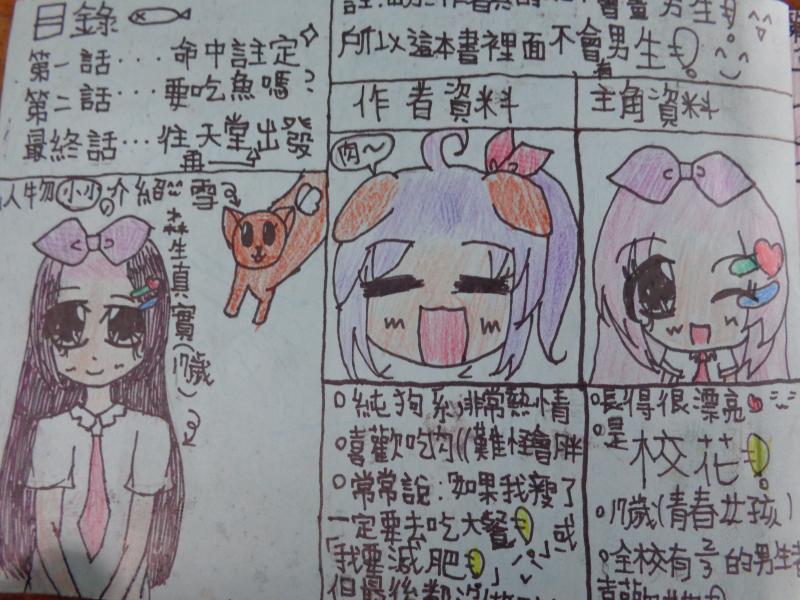 目錄
第一話...命中註定
第二話...要吃魚嗎?
最終話...往天堂出發
再
人物小小介紹
雪
森生真實(17歲)
所以這本書裡面不會有男生!
作者資料
肉~
○純狗系,非常熱情
○喜歡吃肉((難怪會胖
○常常說:「如果我瘦了
一定要去吃大餐!」或
「我要減肥!」
但最後都沒
主角資料
○長得很漂亮
○是校花!
○17歲(青春女孩)
○全校有2/3的男生都
喜歡